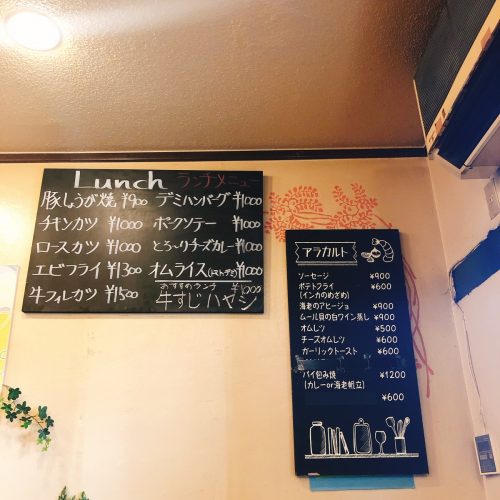 Lunch ランチメニュー
豚しょうが焼 ¥900 デミハンバーグ ¥1000
チキンカツ ¥1000 ポークソテー ¥1000
ロースカツ ¥1000 とろ〜りチーズカレー ¥1000
エビフライ ¥1300 オムライス(トマトorデミ) ¥1000
牛フィレカツ ¥1500 おすすめランチ
牛すじハヤシ ¥1000
アラカルト
ソーセージ ¥900
ポテトフライ ¥600
(インカのめざめ)
海老のアヒージョ ¥900
ムール貝の白ワイン蒸し ¥900
オムレツ ¥500
チーズオムレツ ¥600
ガーリックトースト ¥600
パイ包み焼 ¥1200
(カレーor海老帆立)
¥600